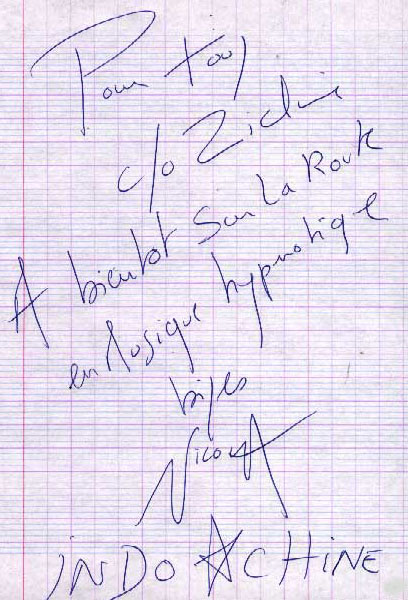 Pour tous
c/o Zicline
A bientôt Sur La Route
en logique hypnotique
bises
Nicola
INDOACHINE